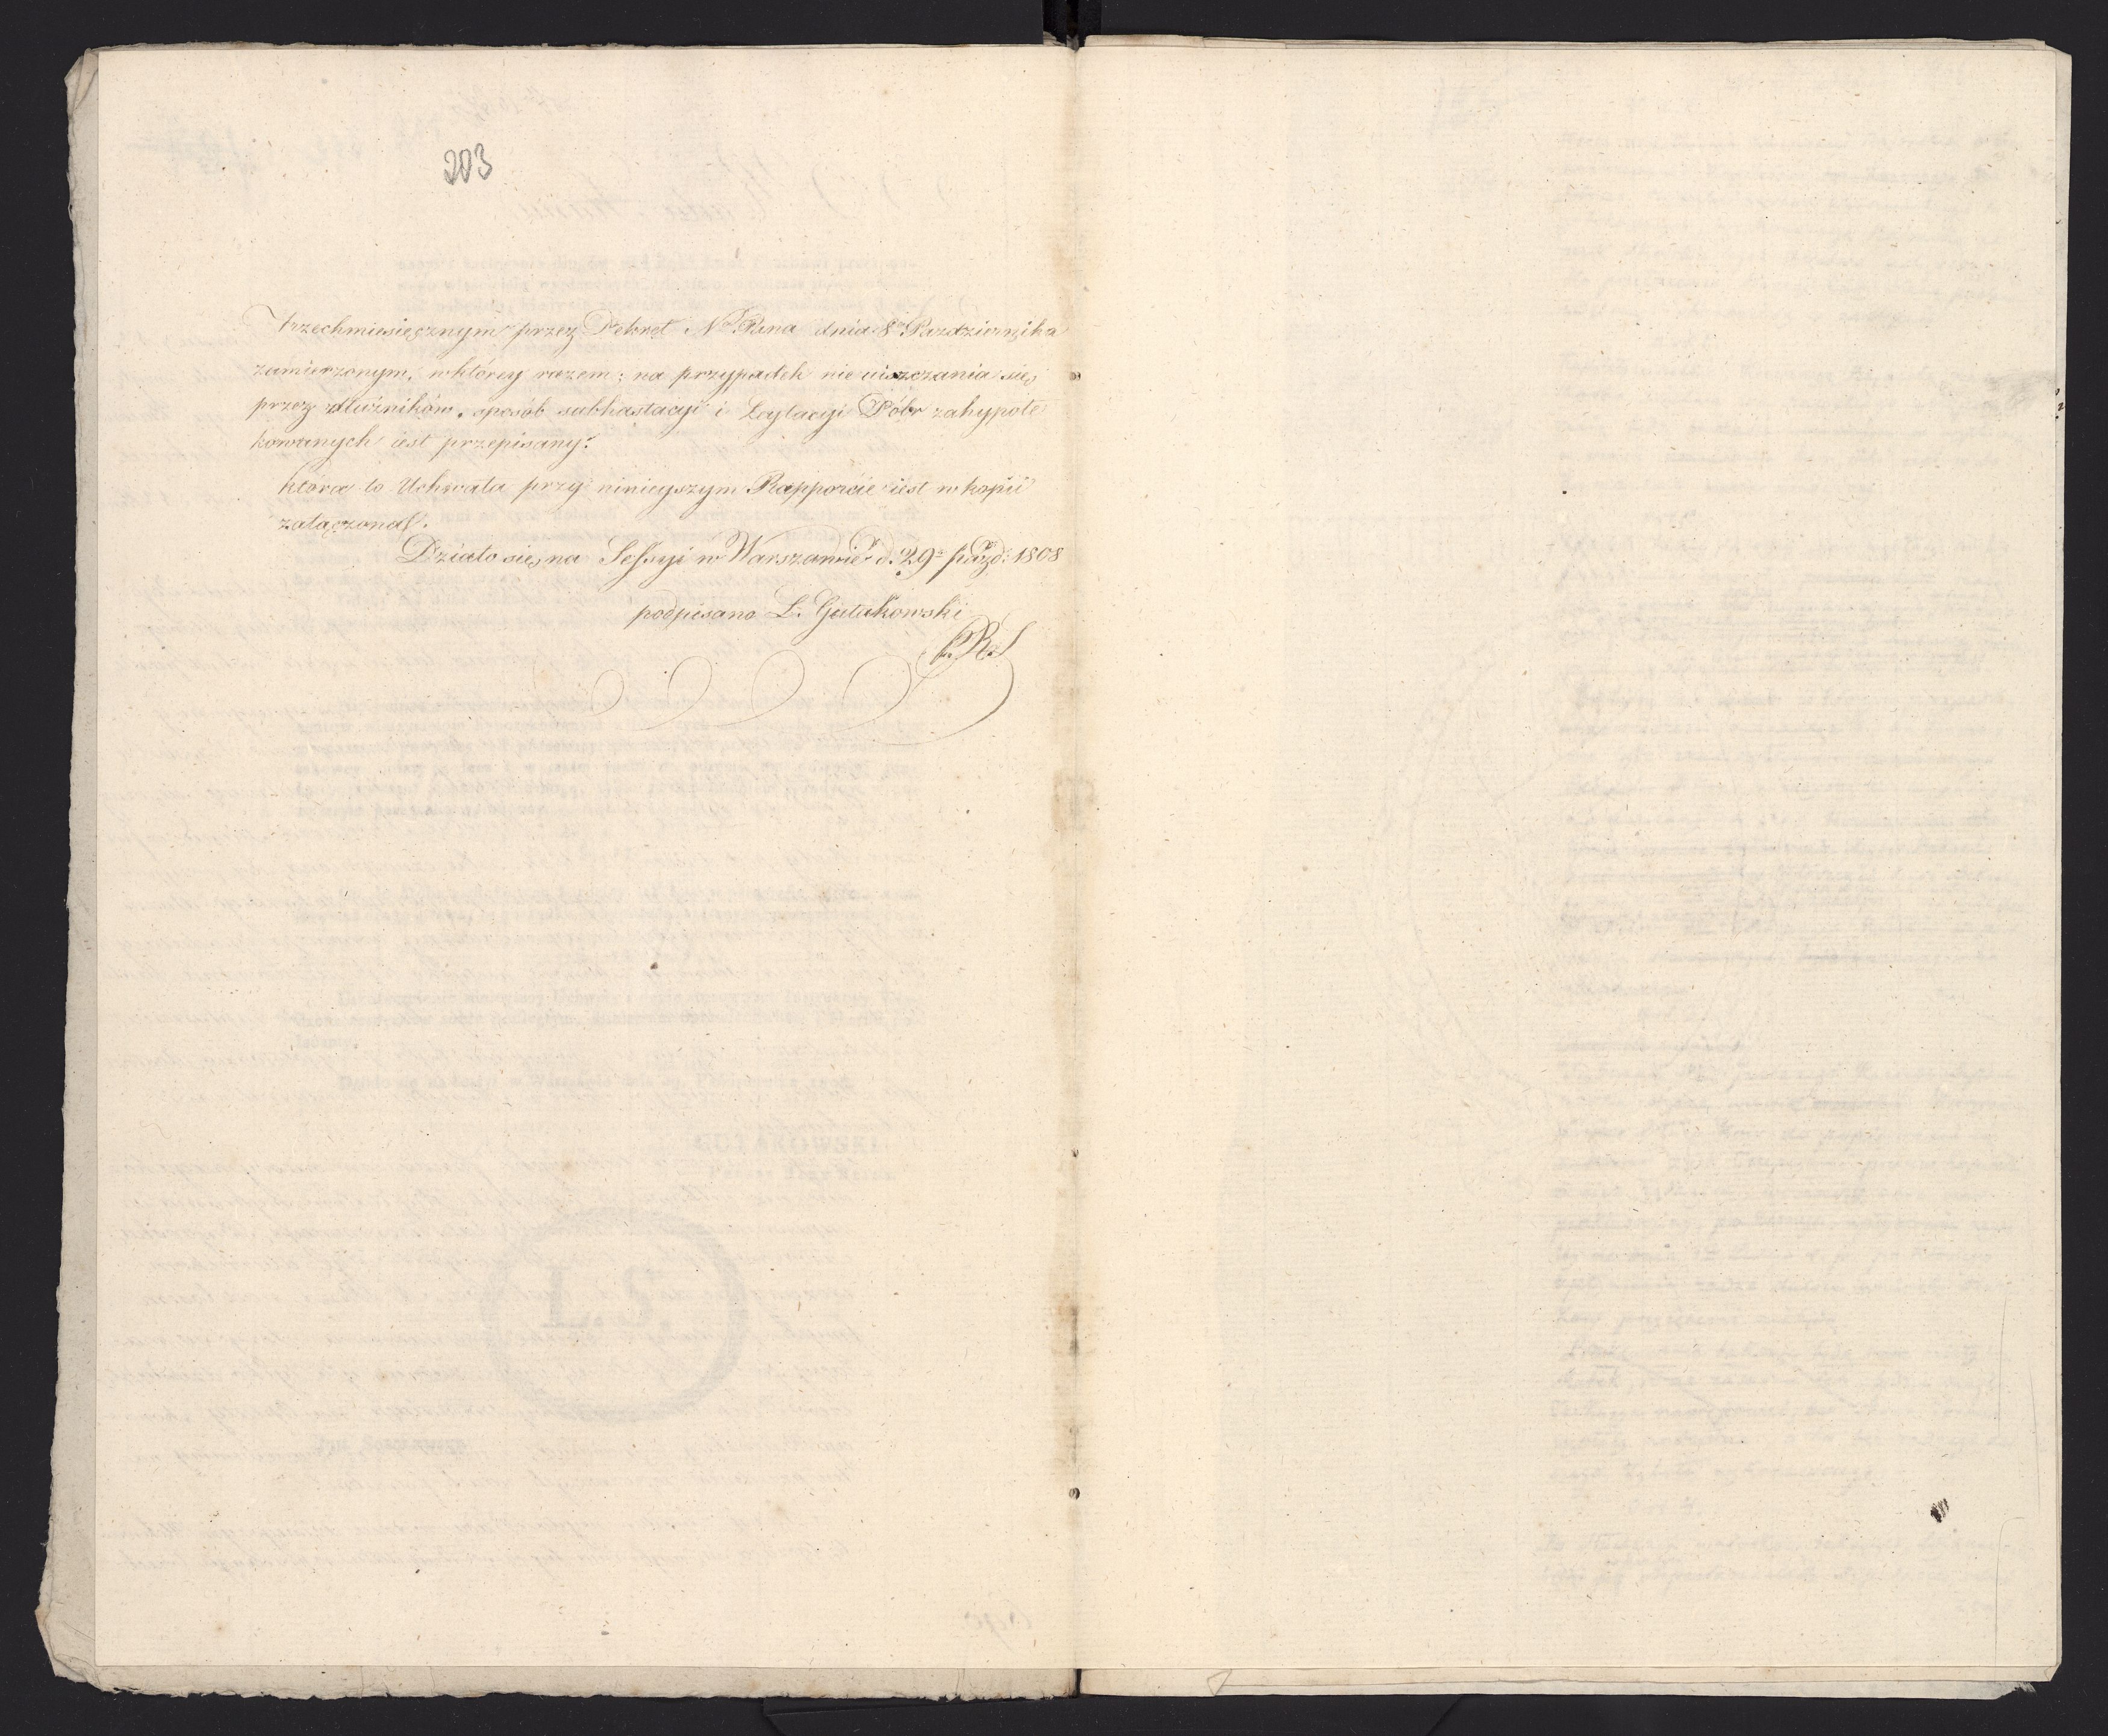 203
trzechmiesięcznym przez Dekret N. Pana dnia 8 Pazdziernika
zamierzonym, w którey razem; na przypadek nie uiszczania się
przez dłużników, sposób subhastacyi i Lcytacyi Dóbr zahypote
kowanych iest przepisany.
która to Uchwała przy ninieyszym Rapporcie iest w kopii
załączona.
Działo się na Sessyi w Warszawie d. 29 Paźd: 1808
podpisano L. Gutakowski